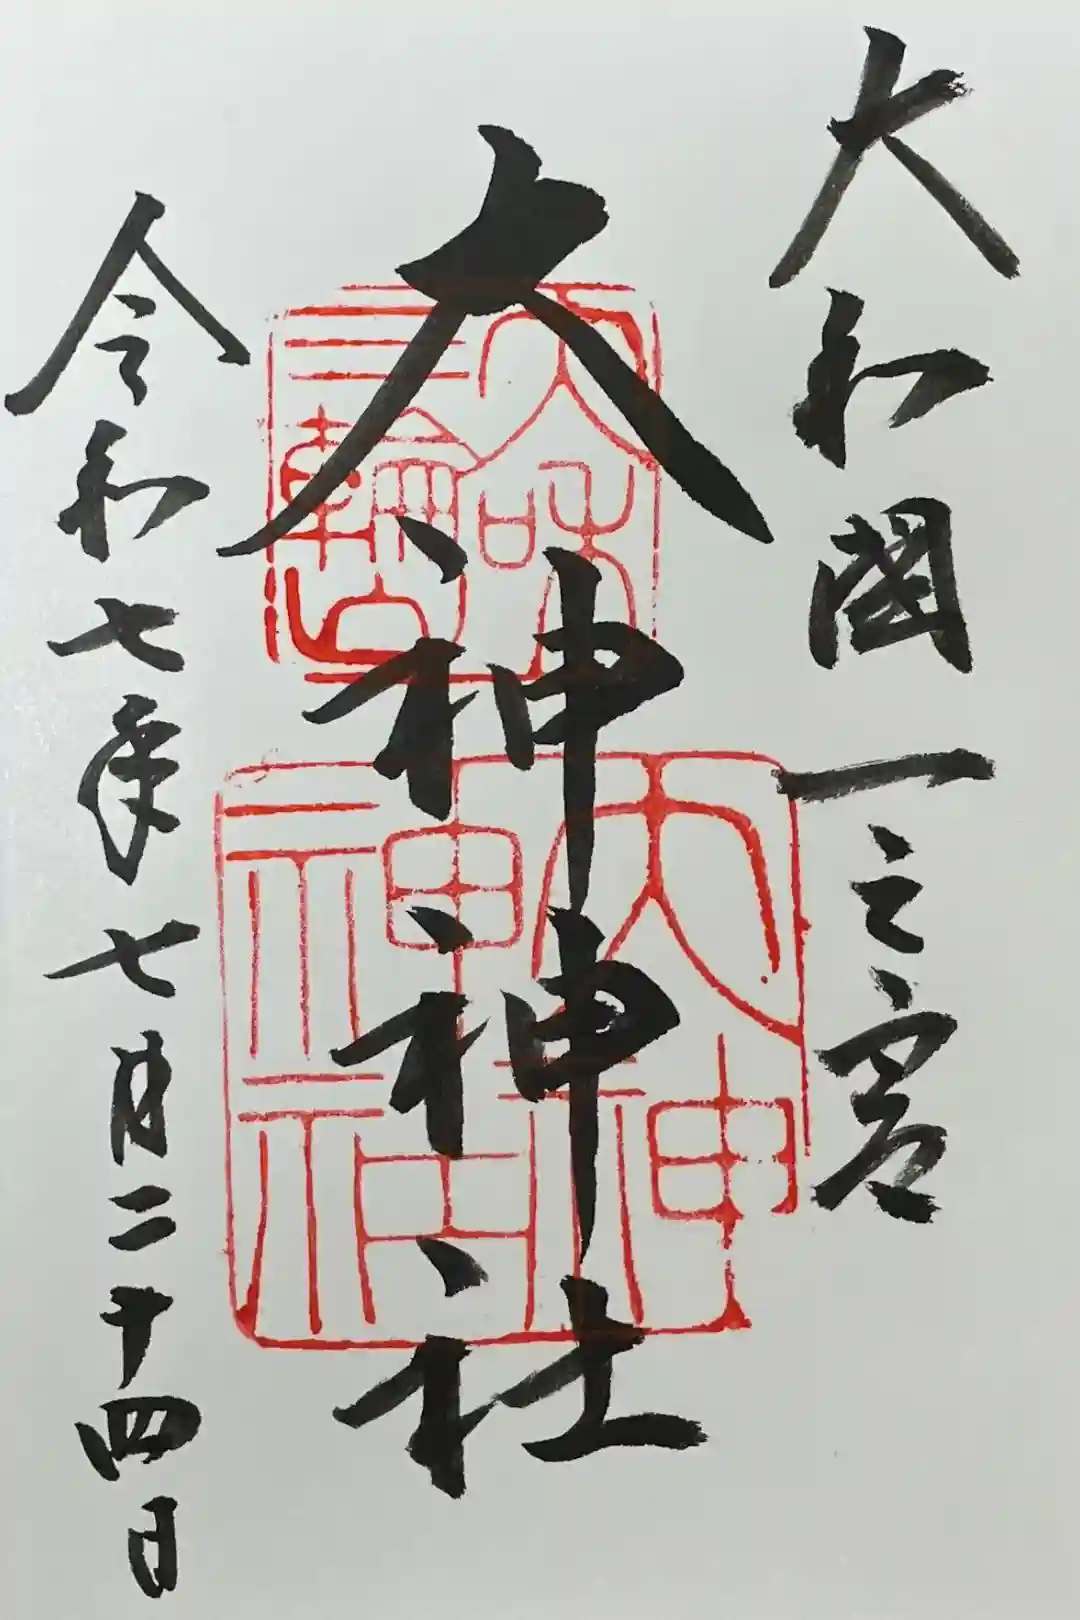 大和國一之宮
大神神社
令和七年七月二十四日
大和
三輪山
大神
神社